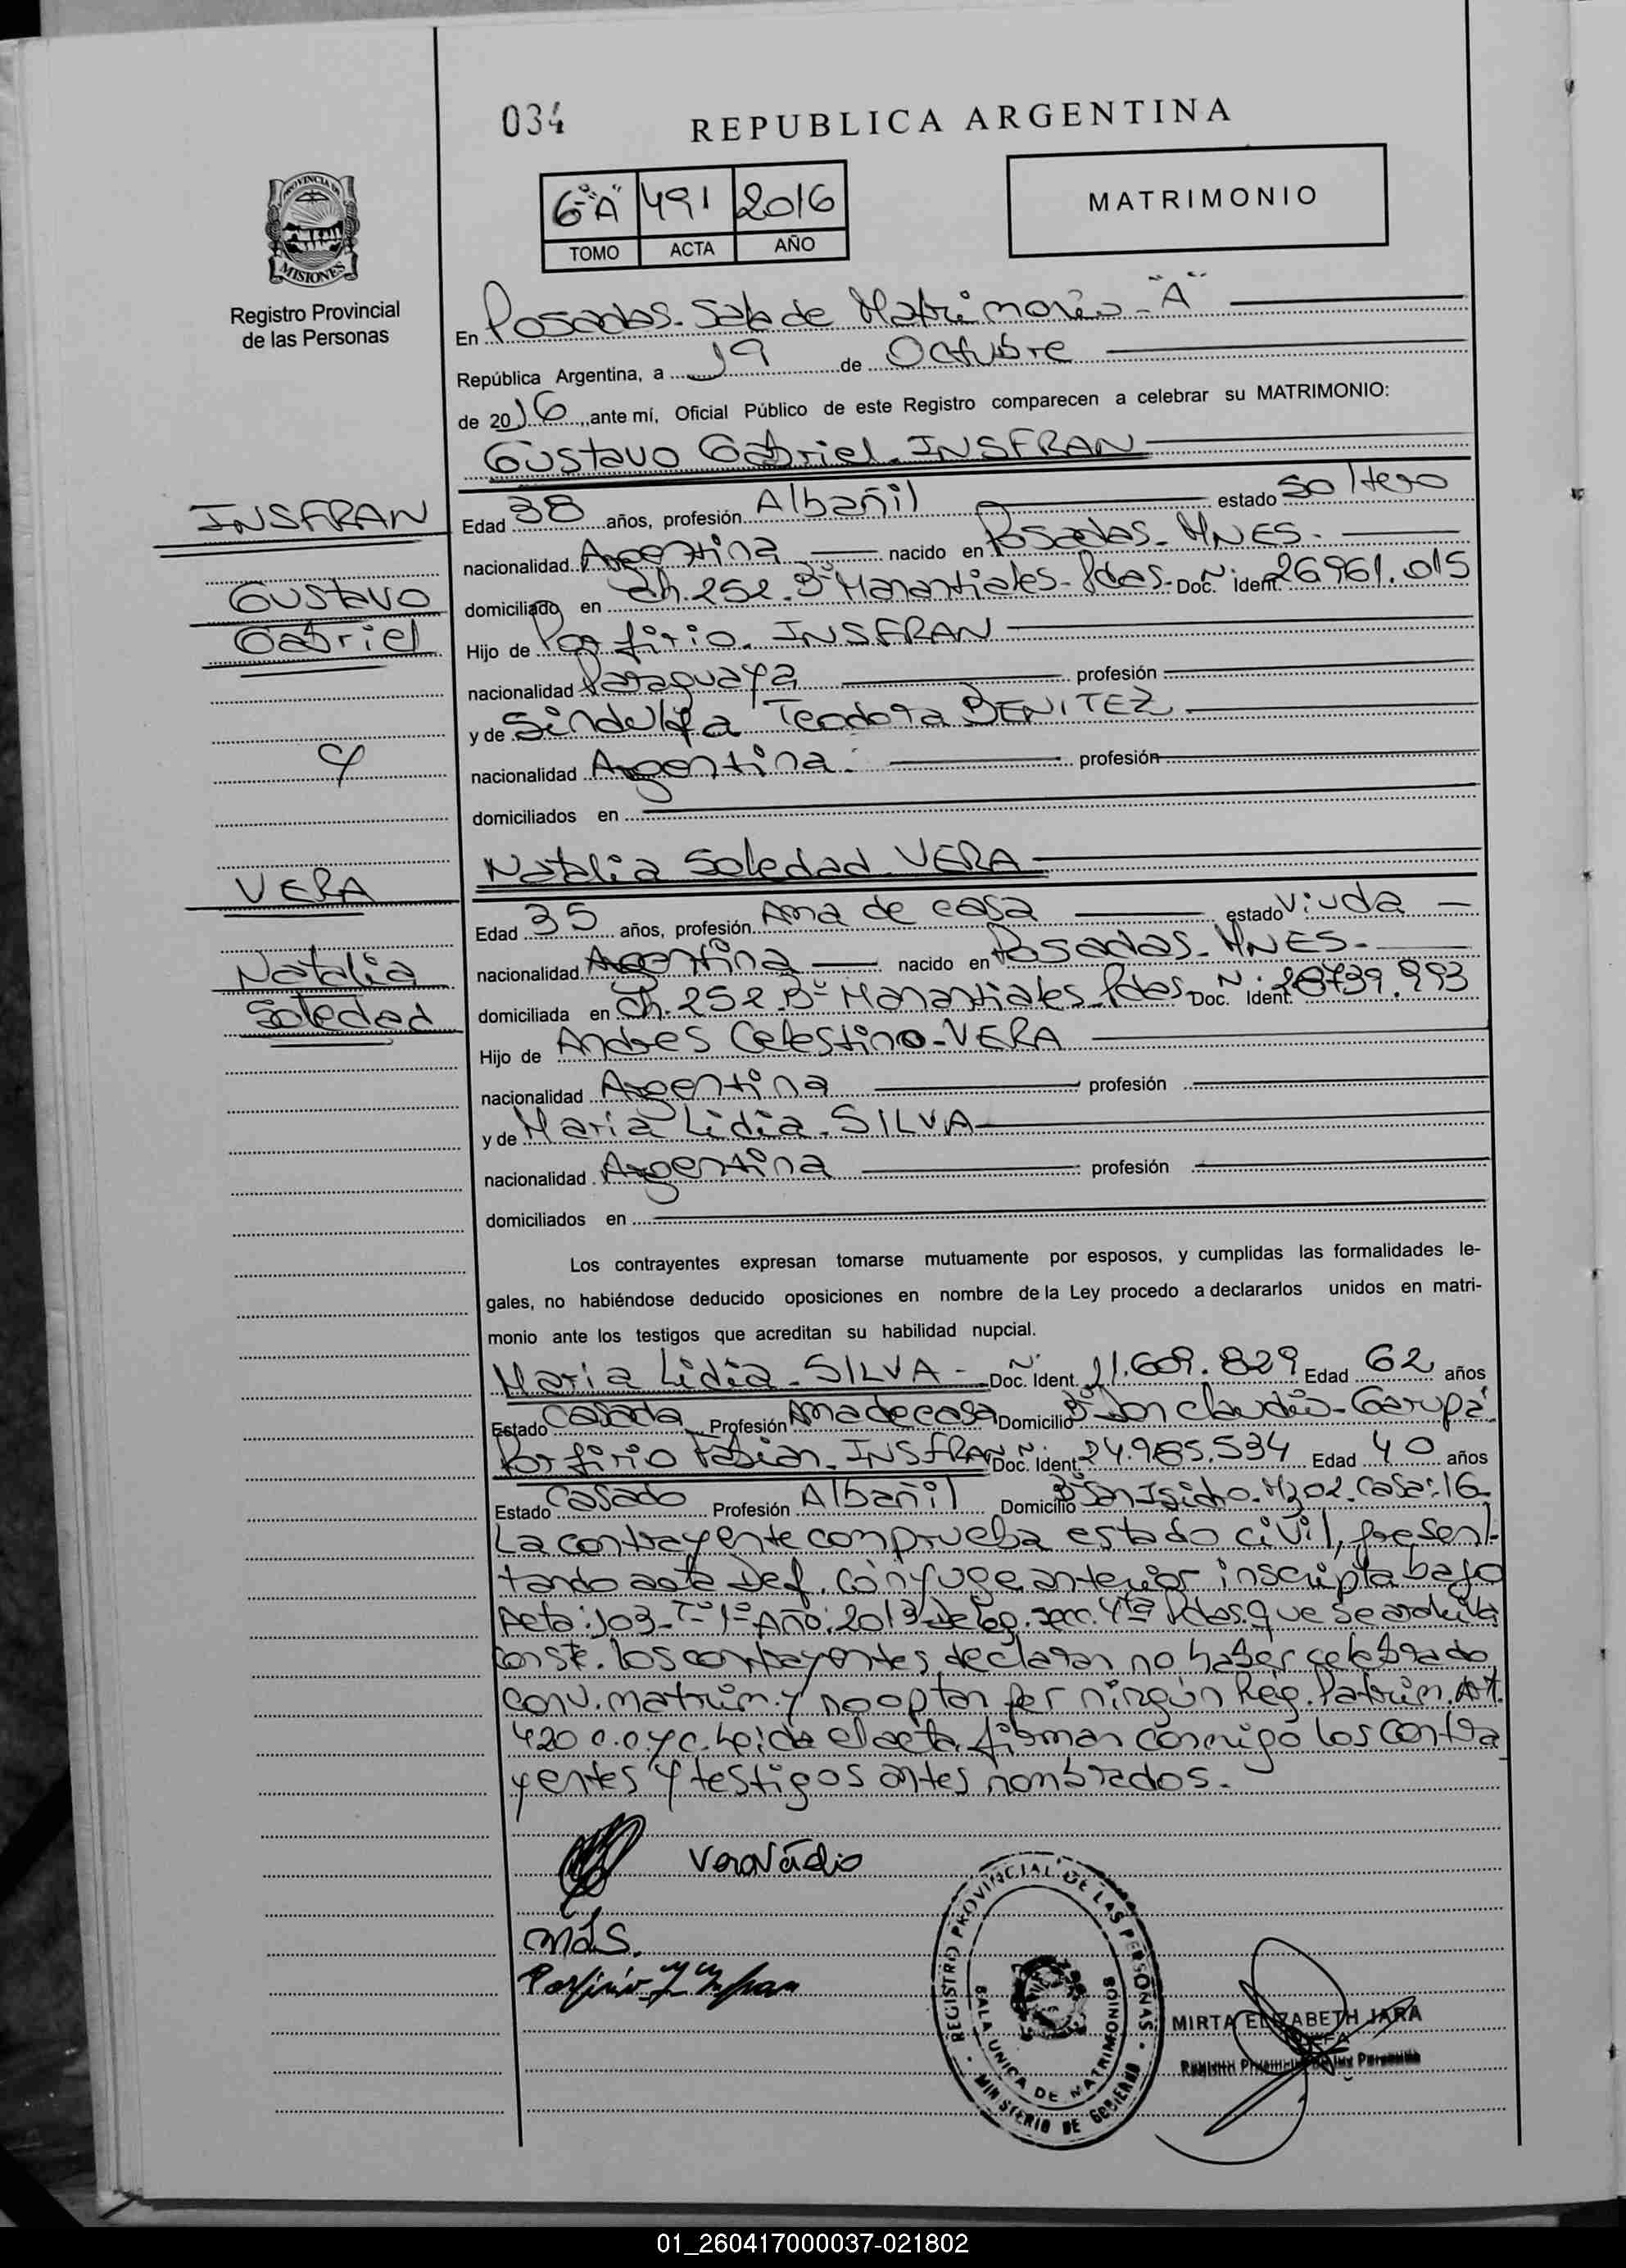 034
REPUBLICA ARGENTINA
6º "A" 491 2016
TOMO ACTA AÑO
MATRIMONIO
PROVINCIA DE
MISIONES
Registro Provincial
de las Personas
En Posadas. Sala de Matrimonio - "A"
República Argentina, a 19 de Octubre
de 2016, ante mí, Oficial Público de este Registro comparecen a celebrar su MATRIMONIO:
Gustavo Gabriel INSFRAN
INSFRAN
Gustavo
Gabriel
y
VERA
Natalia
Soledad
Edad 38 años, profesión Albañil estado Soltero
nacionalidad Argentina nacido en Posadas - MNES.
domiciliado en Ch. 252. Bº Manantiales - Pdas. Doc. Nº Ident. 26961.015
Hijo de Porfirio INSFRAN
nacionalidad Paraguaya profesión
y de Sindulfa Teodora BENITEZ
nacionalidad Argentina. profesión
domiciliados en
Natalia Soledad VERA
Edad 35 años, profesión Ama de casa estado Viuda
nacionalidad Argentina nacido en Posadas - MNES -
domiciliada en Ch. 252 Bº Manantiales Pdas Doc. Nº Ident.
Hijo de Andres Celestino - VERA
nacionalidad Argentina profesión
y de Maria Lidia. SILVA
nacionalidad Argentina profesión
domiciliados en
Los contrayentes expresan tomarse mutuamente por esposos, y cumplidas las formalidades le-
gales, no habiéndose deducido oposiciones en nombre de la Ley procedo a declararlos unidos en matri-
monio ante los testigos que acreditan su habilidad nupcial.
Maria Lidia - SILVA - Doc. Nº Ident. 11.609.829 Edad 62 años
Estado Casada Profesión Ama de casa Domicilio Bº Don Claudio - Garupá
Porfirio Fabian. INSFRAN Doc. Nº Ident. 24.985.534 Edad 40 años
Estado Casado Profesión Albañil Domicilio Bº San Isidro. Mz 02. Casa: 16
La contrayente comprueba estado civil, presen-
tando acta Def. cónyuge anterior inscripta bajo
Acta: 103 - Tº 1º Año: 2013 de secc. 4ta Pdas. que se archiva
conste. los contrayentes declaran no haber celebrado
conv. matrim. y no optan por ningún Reg. Patrim. Art.
420 c.c.y c. Leída el acta firman conmigo los contra
yentes y testigos antes nombrados.
MLS.
REGISTRO PROVINCIAL DE LAS PERSONAS
SALA UNICA DE MATRIMONIOS
MINISTERIO DE GOBIERNO
MIRTA ELIZABETH JARA
JEFA
Registro Provincial de las Personas
01_260417000037-021802